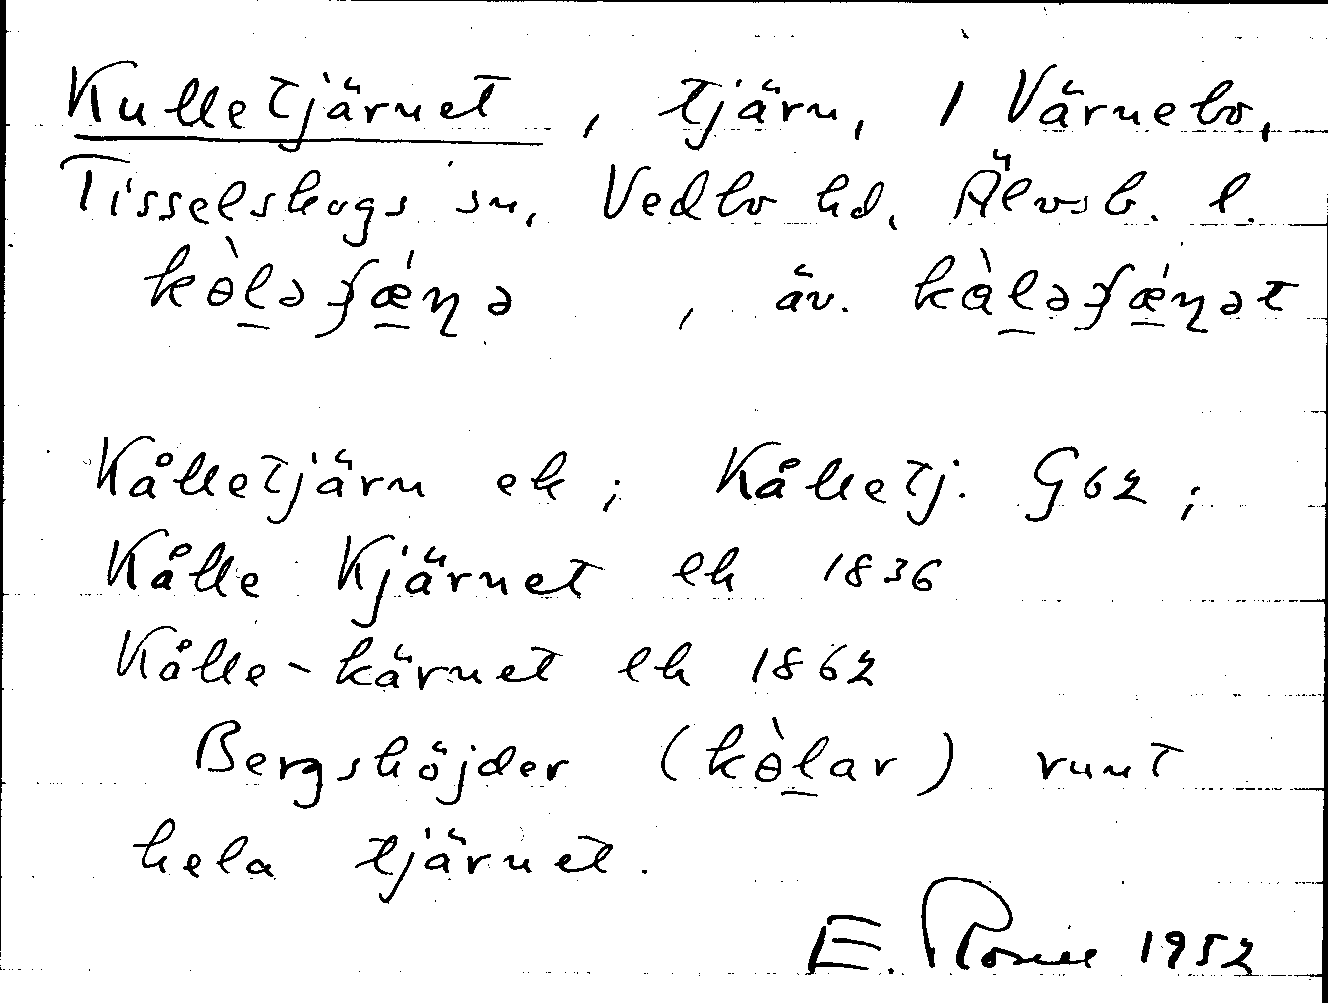 Kulletjärnet, tjärn, 1 Värnebo,
Tisselskogs sn, Vedbo hd. Älvsb. l.
kɵ̀lə ʃǽɳə, äv. kɵ̀lə ʃǽɳət
Kålletjärn ek; Kålletj. G62;
Kålle Kjärnet lh 1836
Kålle-kärnet lh 1862
Bergshöjder (kɵ̀lar) runt
hela tjärnet.
E. 1952